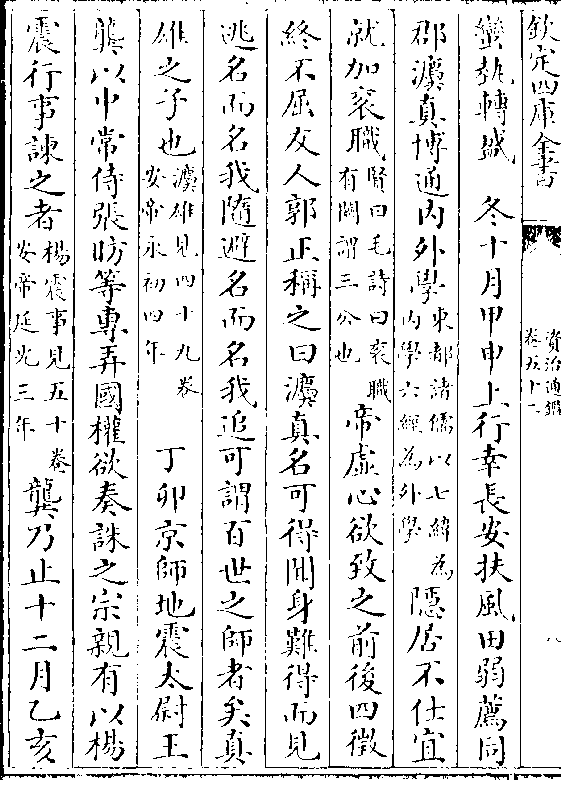 欽定四庫全書
資治通鑑
卷五十一
八
蠻執轉盛　冬十月甲申上行幸長安扶風田弱薦同
郡灋真博通内外學東都諸儒以七緯為内學六經為外學隱居不仕宜
就加衮職賢曰毛詩曰衮職有闕謂三公也帝虚心欲致之前後四徵
終不屈友人郭正稱之曰灋真名可得聞身難得而見
逃名而名我隨避名而名我追可謂百世之師者矣真
雄之子也灋雄見四十九卷安帝永初四年　丁卯京師地震太尉王
龔以中常侍張昉等專弄國權欲奏誅之宗親有以楊
震行事諫之者楊震事見五十卷安帝延光三年龔乃止十二月乙亥